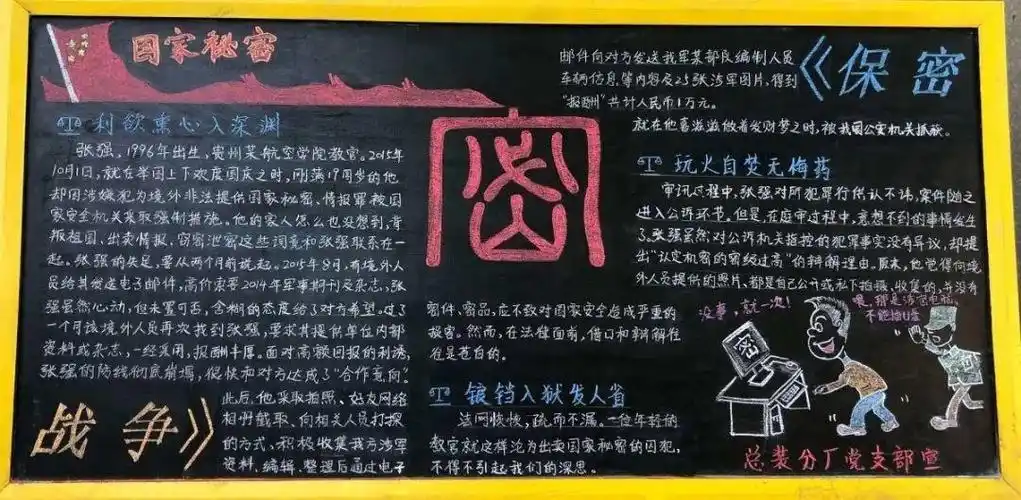 国家秘密
《保密
战争》
利欲熏心入深渊
张强，1996年出生，贵州某航空学院教官。2015年
10月1日，就在举国上下欢度国庆之时，刚满19周岁的他
却因涉嫌犯为境外非法提供国家秘密、情报罪被国
家安全机关采取强制措施。他的家人怎么也没想到，背
叛祖国、出卖情报、窃密泄密这些词竟和张强联系在一
起。张强的失足，要从两个月前说起。2015年8月，有境外人
员给其发送电子邮件，高价索要2014年军事期刊及杂志，张
强虽然心动，但未置可否，含糊的态度给了对方希望。过了
一个月该境外人员再次找到张强，要求其提供单位内部
资料或杂志，一经采用，报酬丰厚。面对高额回报的利诱，
张强的防线彻底崩塌，很快和对方达成了“合作意向”。
此后，他采取拍照、好友网络
相册截取、向相关人员打探
的方式，积极收集我方涉军
资料，编辑、整理后通过电子
邮件向对方发送我军某部队编制人员
车辆信息等内容及23张涉军图片，得到
“报酬”共计人民币1万元。
就在他喜滋滋做着发财梦之时，被我国公安机关抓获。
密
玩火自焚无悔药
审讯过程中，张强对所犯罪行供认不讳，案件随之
进入公诉环节。但是，在庭审过程中，意想不到的事情发生
了。张强虽然对公诉机关指控的犯罪事实没有异议，却提
出“认定机密的密级过高”的辩解理由。原来，他觉得向境
外人员提供的照片，都是自己公开或私下拍摄、收集的，并没有
密件、密品，应不致对国家安全造成严重的
损害。然而，在法律面前，借口和辩解往
往是苍白的。
锒铛入狱发人省
法网恢恢，疏而不漏，一位年轻的
教官就这样沦为出卖国家秘密的囚犯，
不得不引起我们的深思。
没事，就一次！
不能插U盘
密
总装分厂党支部宣